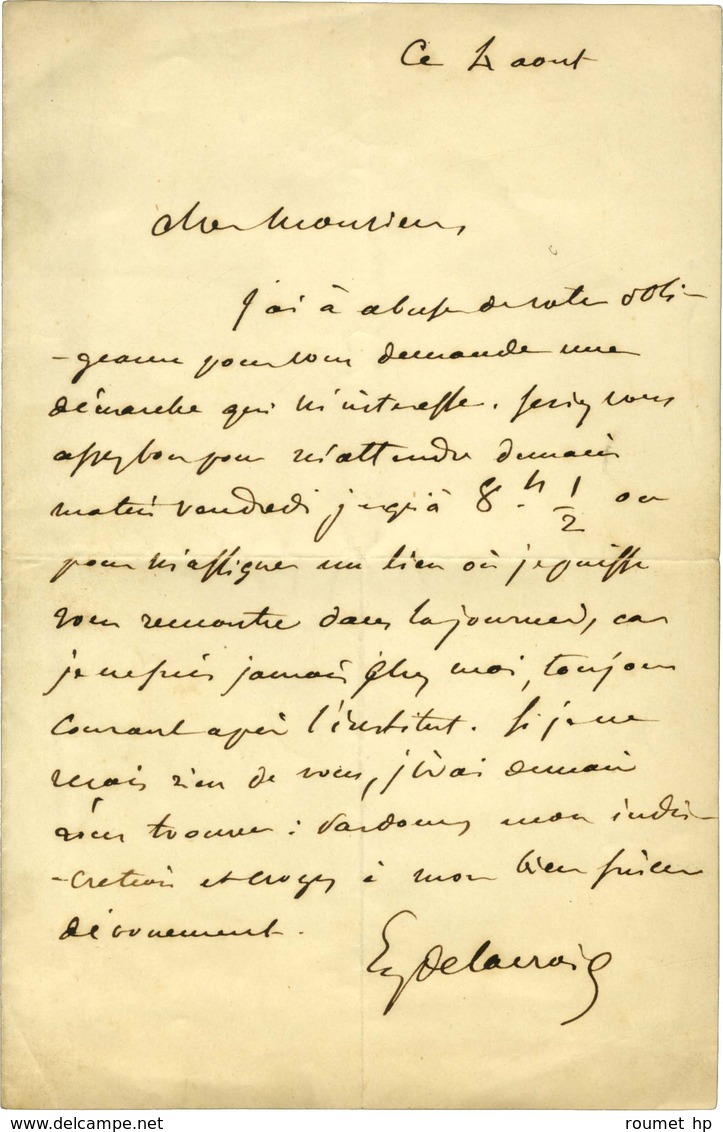 Ce 4 aout
cher Monsieur,
J'ai à abuser de votre obli-
-geance pour vous demander une
démarche qui m'intéresse. Seriez vous
assez bon pour m'attendre demain
matin vendredi jusqu'à 8. h 1/2 ou
pour m'assigner un lieu où je puisse
vous rencontrer dans la journée, car
je ne suis jamais chez moi, toujours
courant après l'institut. Si je ne
reçois rien de vous, j'irai demain
vous trouver : Pardonnez mon indis-
-cretion et croyez à mon bien sincère
dévouement.
Eug Delacroix
www.delcampe.net
roumet hp